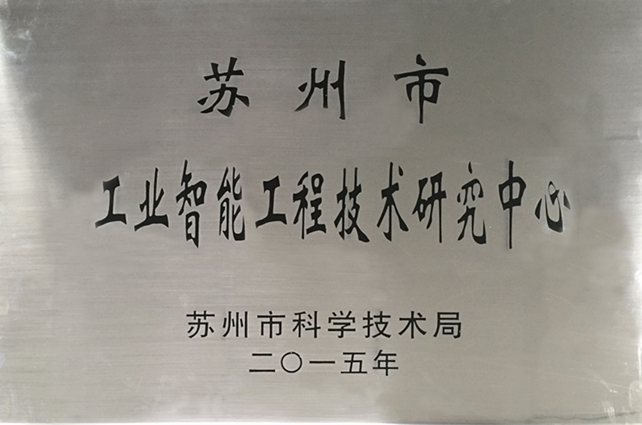 苏州市
工业智能工程技术研究中心
苏州市科学技术局
二〇一五年